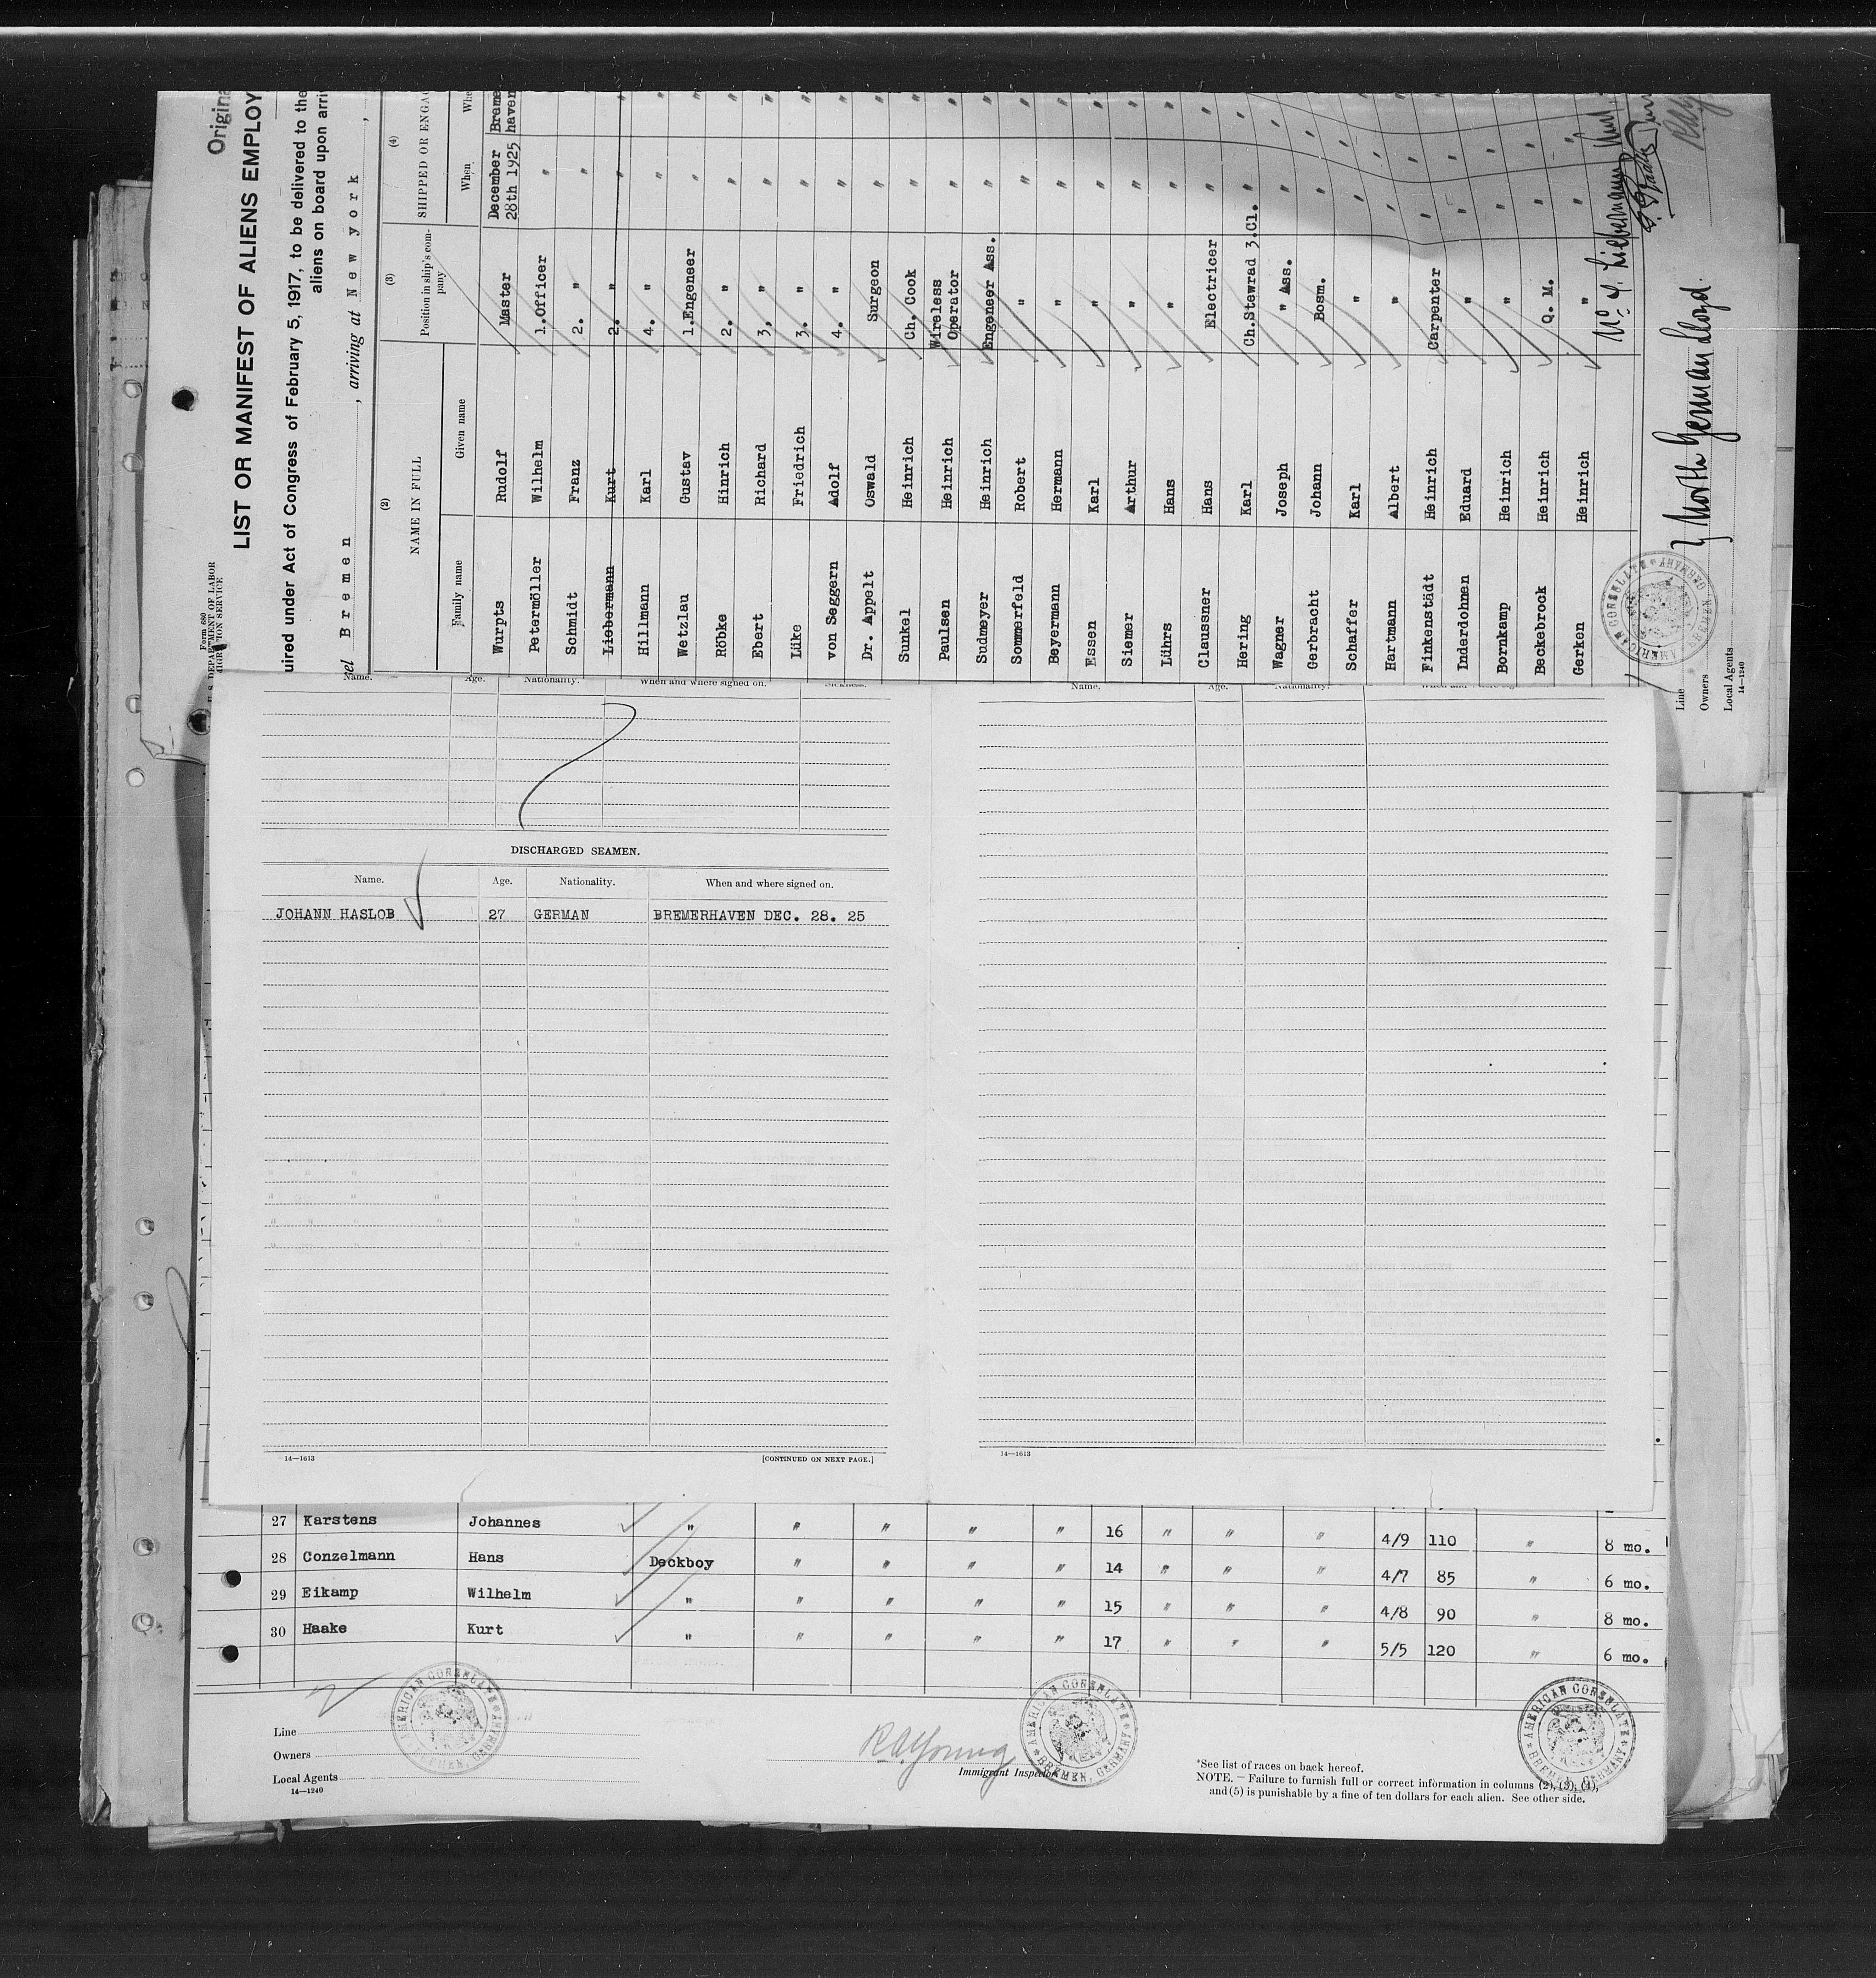 Original
Form 680
U. S. DEPARTMENT OF LABOR
IMMIGRATION SERVICE
LIST OR MANIFEST OF ALIENS EMPLOY
uired under Act of Congress of February 5, 1917, to be delivered to the
aliens on board upon arri
el Bremen , arriving at New york ,
(2) (3) (4)
NAME IN FULL Position in ship's company SHIPPED OR ENGAG
Family name Given name When Whe
Wurpts Rudolf Master December 28th 1925 Breme haven
Petermöller Wilhelm 1.Officer " "
Schmidt Franz 2. " " "
Liebermann Kurt 2. " " "
Hillmann Karl 4. " " "
Wetzlau Gustav 1.Engeneer " "
Röbke Hinrich 2. " " "
Ebert Richard 3. " " "
Lüke Friedrich 3. " " "
von Seggern Adolf 4. " " "
Dr. Appelt Oswald Surgeon " "
Sunkel Heinrich Ch. Cook " "
Paulsen Heinrich Wireless Operator " "
Sudmeyer Heinrich Engeneer Ass. " "
Sommerfeld Robert " " "
Beyermann Hermann " " "
Essen Karl " " "
Siemer Arthur " " "
Lührs Hans " " "
Claussner Hans Electricer " "
Hering Karl Ch.Stewrad 3.Cl. " "
Wagner Joseph " Ass. " "
Gerbracht Johann Bosm. " "
Schaffer Karl " " "
Hertmann Albert " " "
Finkenstädt Heinrich Carpenter " "
Inderdohnen Eduard " " "
Bornkamp Heinrich " " "
Beckebrock Heinrich Q. M. " "
Gerken Heinrich " " "
No 4. Liebermann
Line North German Lloyd.
Owners
Local Agents
14—1240
AMERICAN CONSULATE
BREMEN, GERMANY
Name. Age. Nationality. When and where signed on. Sickness.
DISCHARGED SEAMEN.
Name. Age. Nationality. When and where signed on.
JOHANN HASLOB 27 GERMAN BREMERHAVEN DEC. 28. 25
14—1613 [CONTINUED ON NEXT PAGE.]
Name. Age. Nationality. When and where signed on.
14—1613
27 Karstens Johannes " " " " " 16 " " " 4/9 110 " 8 mo.
28 Conzelmann Hans Deckboy " " " " 14 " " " 4/7 85 " 6 mo.
29 Eikamp Wilhelm " " " " " 15 " " " 4/8 90 " 8 mo.
30 Haake Kurt " " " " " 17 " " " 5/5 120 " 6 mo.
AMERICAN CONSULATE
BREMEN, GERMANY
AMERICAN CONSULATE
BREMEN, GERMANY
AMERICAN CONSULATE
BREMEN, GERMANY
Line
Owners
Local Agents
14—1240
R A Young
Immigrant Inspector
*See list of races on back hereof.
NOTE. — Failure to furnish full or correct information in columns (2), (3), (4),
and (5) is punishable by a fine of ten dollars for each alien. See other side.